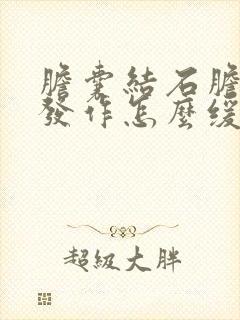 膽囊結石膽
發作怎麼緩
超級大胖